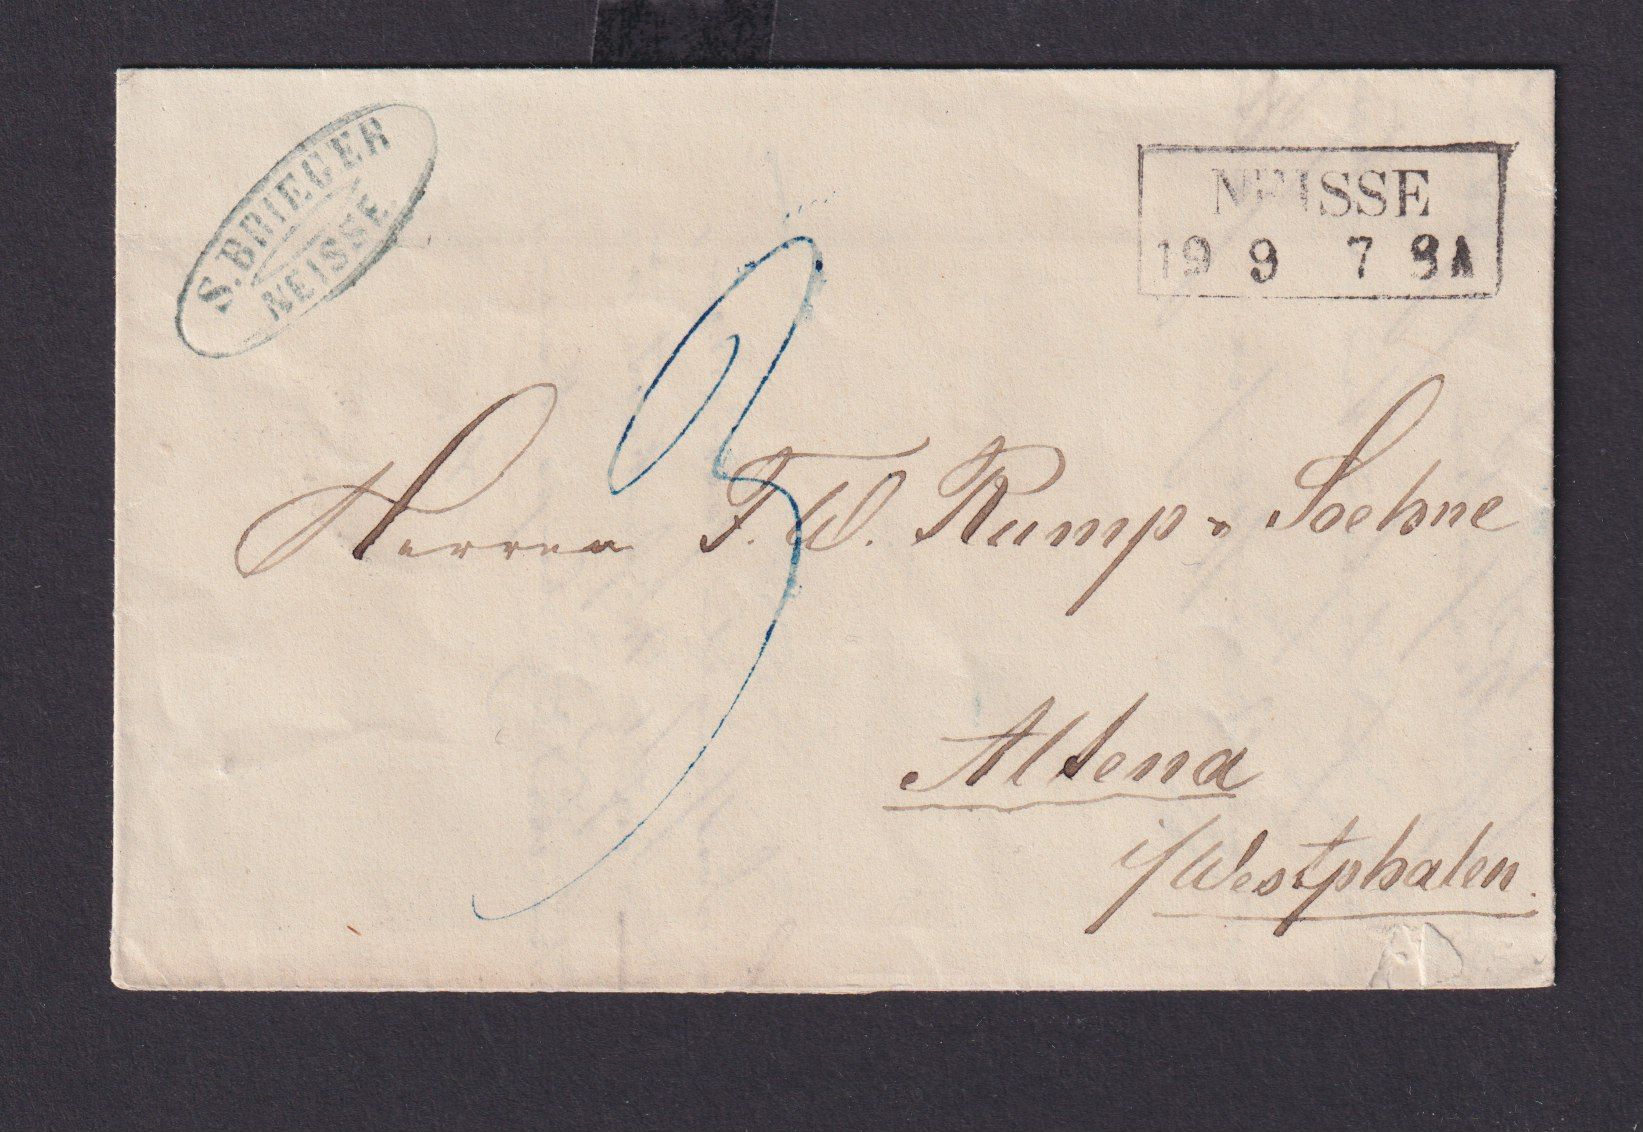 S. BRIEGER
NEISSE.
NEISSE
19 9 7 8A
3
Herren F. W. Rump & Soehne
Altena
i/Westphalen.